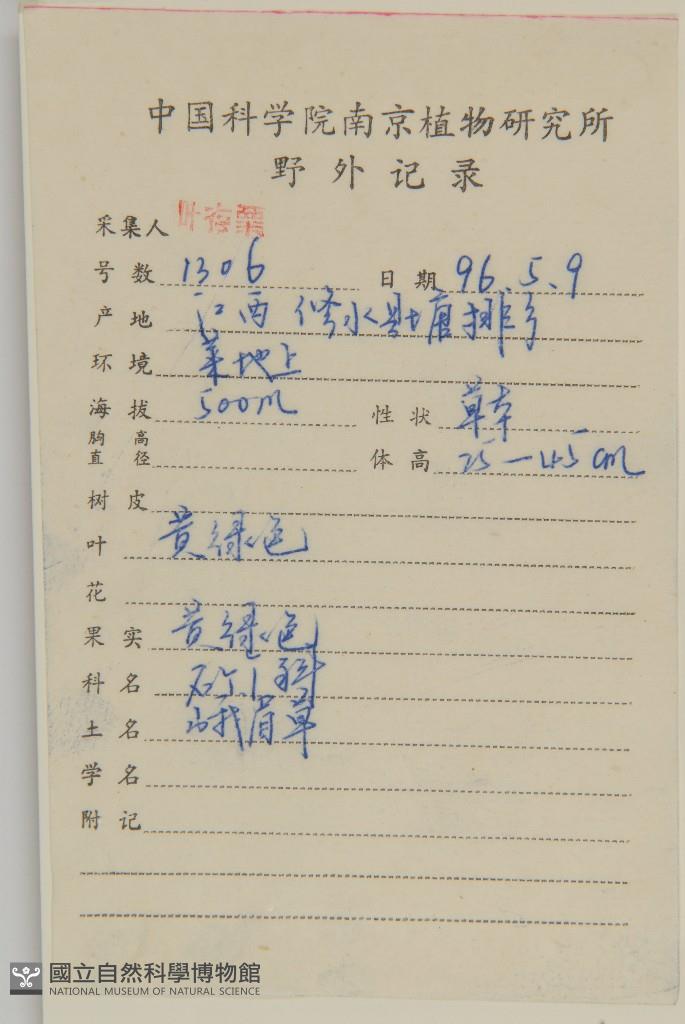 中国科学院南京植物研究所
野外记录
采集人 叶存粟
号数 1306 日期 96.5.9
产地 江西修水县塘排乡
环境 菜地上
海拔 500m 性状 草本
胸高直径 体高 25—45cm
树皮
叶 黄绿色
花
果实 黄绿色
科名 科
土名 峨眉草
学名
附记
國立自然科學博物館
NATIONAL MUSEUM OF NATURAL SCIENCE